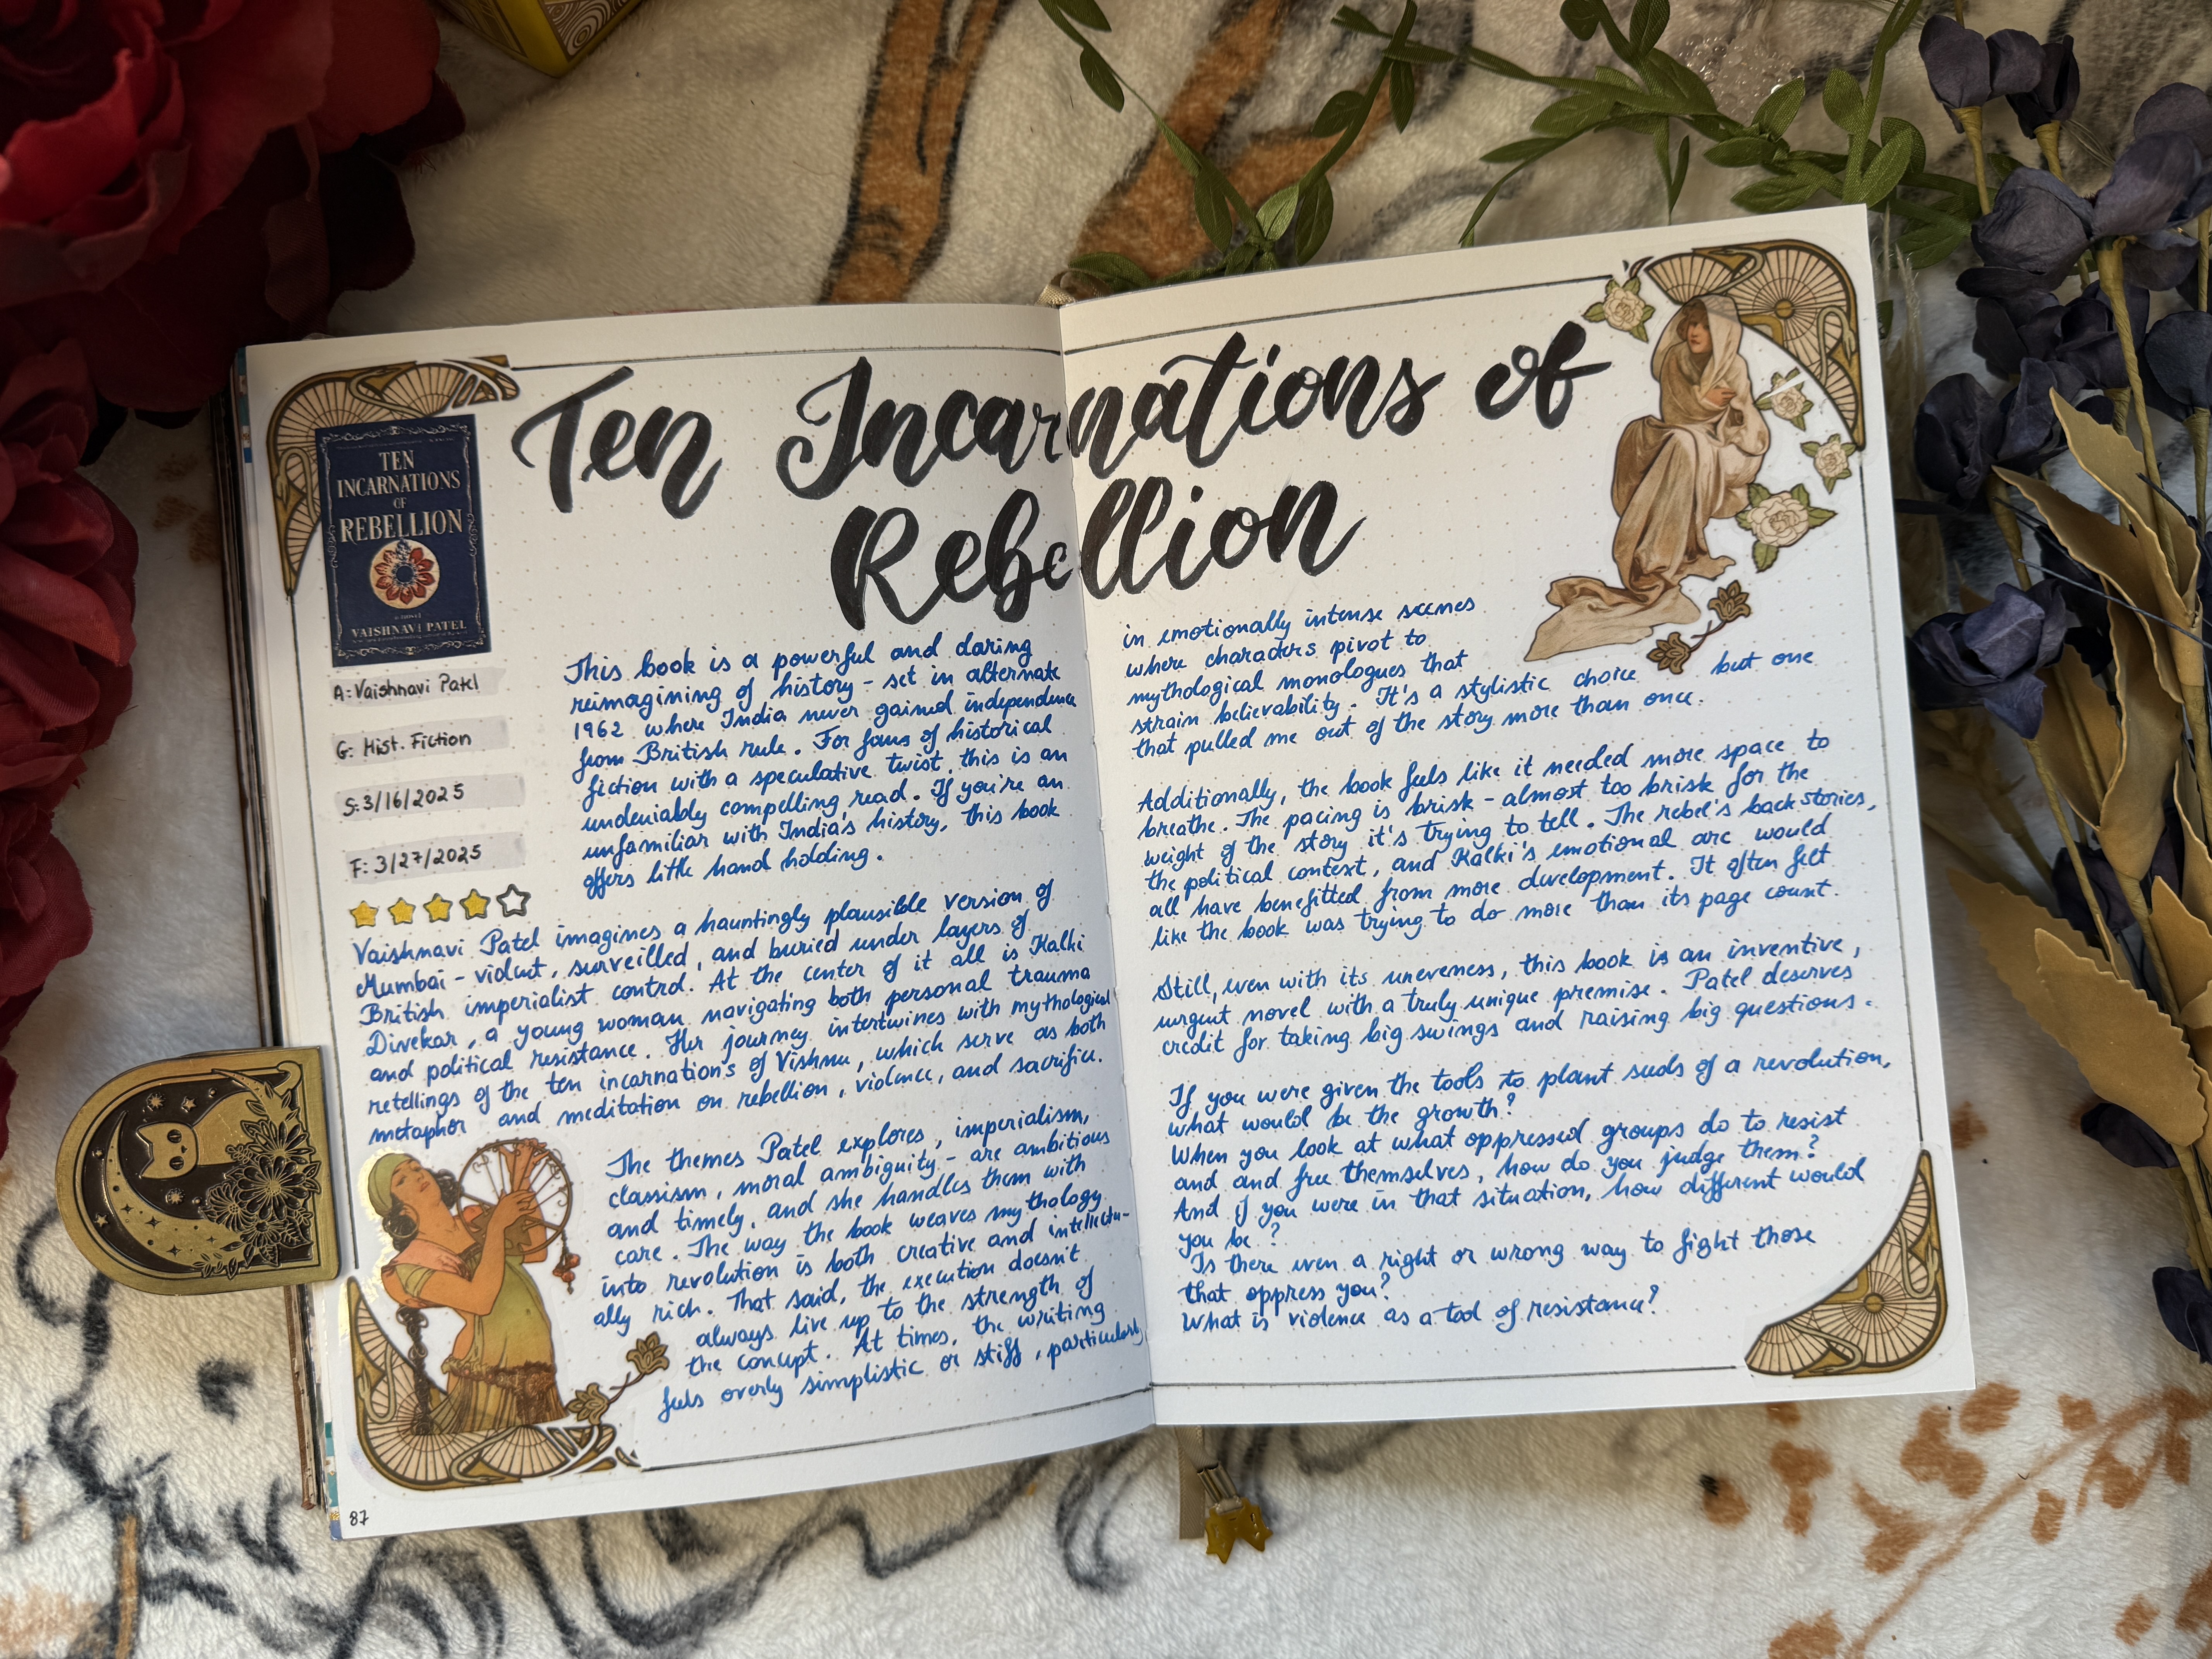 Ten Incarnations of
Rebellion
TEN
INCARNATIONS
OF
REBELLION
A NOVEL
VAISHNAVI PATEL
A: Vaishnavi Patel
G: Hist. Fiction
S: 3/16/2025
F: 3/27/2025
This book is a powerful and daring
reimagining of history - set in alternate
1962 where India never gained independence
from British rule. For fans of historical
fiction with a speculative twist, this is an
undeniably compelling read. If you're an
unfamiliar with India's history, this book
offers little hand holding.
Vaishnavi Patel imagines a hauntingly plausible version of
Mumbai - violent, surveilled, and buried under layers of
British imperialist control. At the center of it all is Kalki
Divekar, a young woman navigating both personal trauma
and political resistance. Her journey intertwines with mythological
retellings of the ten incarnations of Vishnu, which serve as both
metaphor and meditation on rebellion, violence, and sacrifice.
The themes Patel explores, imperialism,
classism, moral ambiguity - are ambitious
and timely, and she handles them with
care. The way the book weaves mythology
into revolution is both creative and intellectu-
ally rich. That said, the execution doesn't
always live up to the strength of
the concept. At times, the writing
feels overly simplistic or stiff, particularly
87
in emotionally intense scenes
where characters pivot to
mythological monologues that
strain believability. It's a stylistic choice but one
that pulled me out of the story more than once.
Additionally, the book feels like it needed more space to
breathe. The pacing is brisk - almost too brisk for the
weight of the story it's trying to tell. The rebel's back stories,
the political context, and Kalki's emotional arc would
all have benefitted from more development. It often felt
like the book was trying to do more than its page count.
Still, even with its uneveness, this book is an inventive,
urgent novel with a truly unique premise. Patel deserves
credit for taking big swings and raising big questions.
If you were given the tools to plant seeds of a revolution,
what would be the growth?
When you look at what oppressed groups do to resist
and and free themselves, how do you judge them?
And if you were in that situation, how different would
you be?
Is there even a right or wrong way to fight those
that oppress you?
What is violence as a tool of resistance?